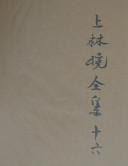 上林暁全集十六